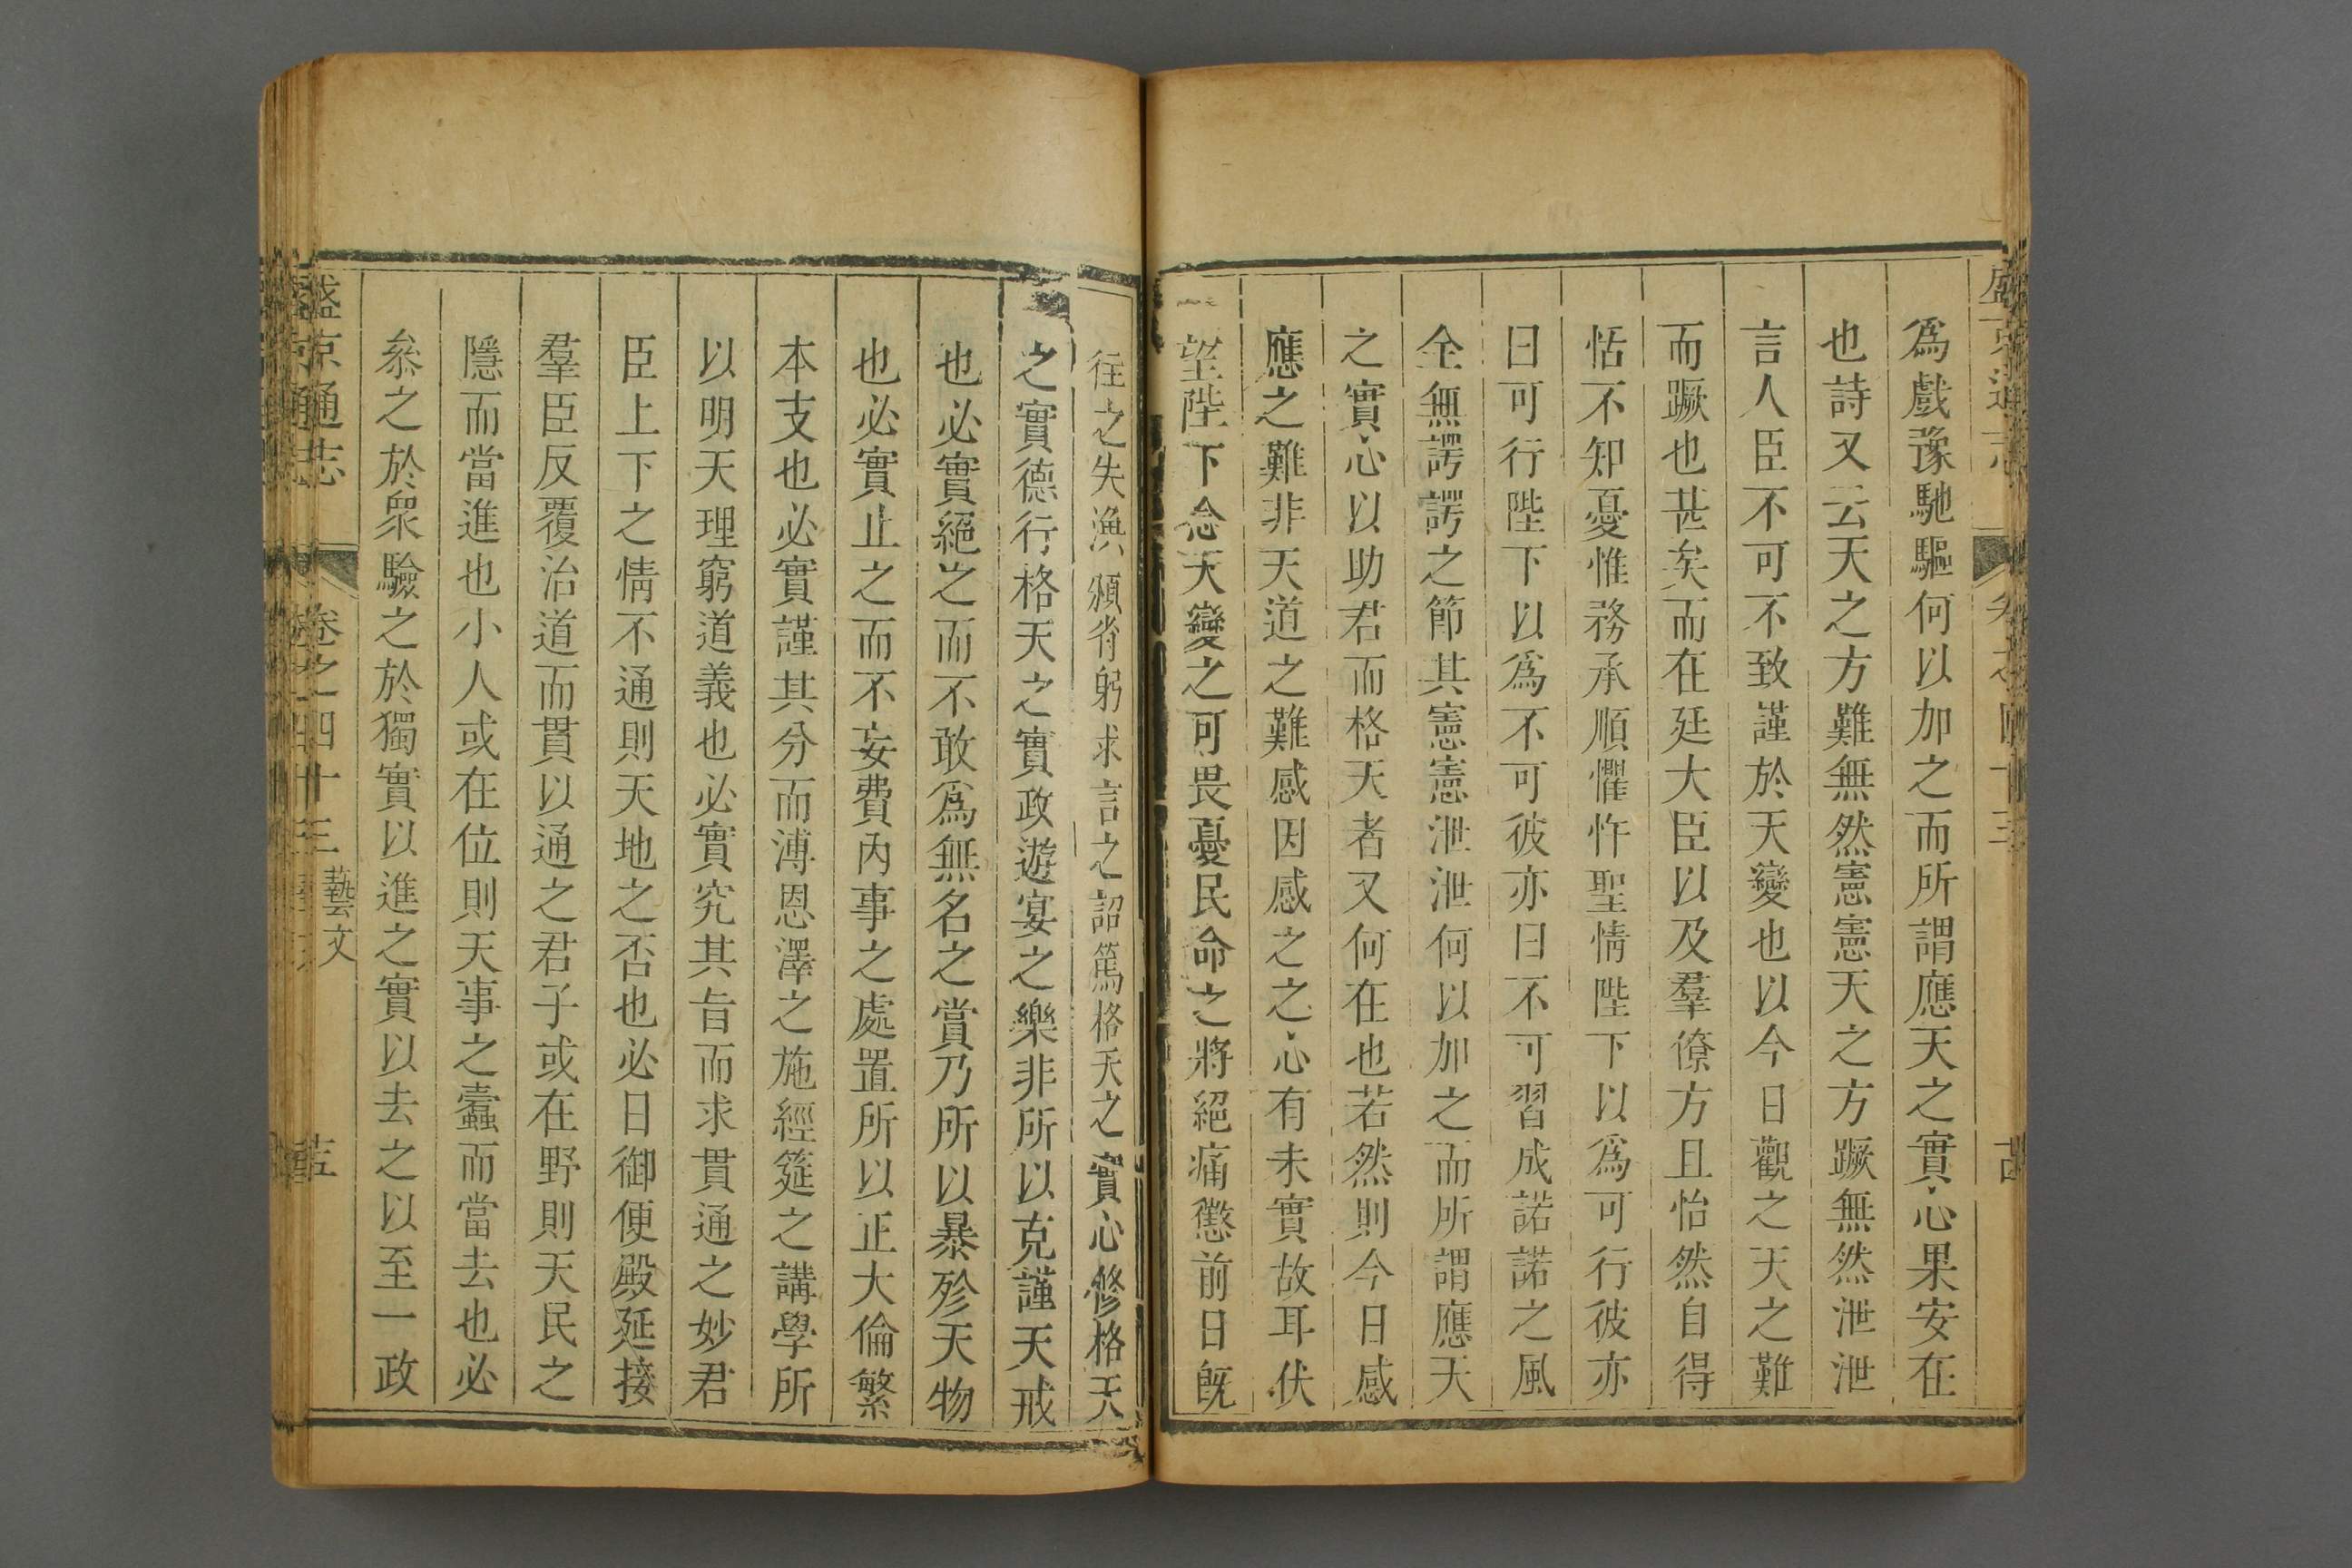 盛京通志 卷之四十三
爲戲豫馳驅何以加之而所謂應天之實心果安在
也詩又云天之方難無然憲憲天之方蹶無然泄泄
言人臣不可不致謹於天變也以今日觀之天之難
而蹶也甚矣而在廷大臣以及羣僚方且怡然自得
恬不知憂惟務承順懼忤聖情陛下以爲可行彼亦
曰可行陛下以爲不可彼亦曰不可習成諾諾之風
全無諤諤之節其憲憲泄泄何以加之而所謂應天
之實心以助君而格天者又何在也若然則今日感
應之難非天道之難感因感之之心有未實故耳伏
望陛下念天變之可畏憂民命之將絕痛懲前日既
往之失渙頒省躬求言之詔篤格天之實心修格天
之實德行格天之實政遊宴之樂非所以克謹天戒
也必實絕之而不敢爲無名之賞乃所以暴殄天物
也必實止之而不妄費內事之處置所以正大倫繁
本支也必實謹其分而溥恩澤之施經筵之講學所
以明天理窮道義也必實究其旨而求貫通之妙君
臣上下之情不通則天地之否也必日御便殿延接
羣臣反覆治道而貫以通之君子或在野則天民之
隱而當進也小人或在位則天事之蠹而當去也必
叅之於衆驗之於獨實以進之實以去之以至一政
盛京通志 卷之四十三 藝文